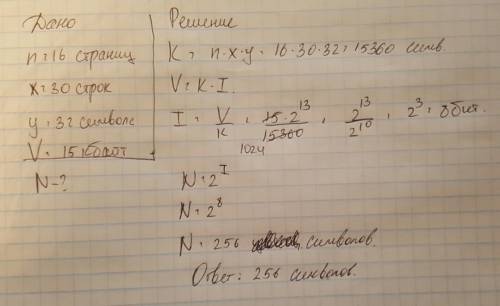 Дано
n = 16 страниц
x = 30 строк
y = 32 символа
V = 15 Кбайт
N - ?
Решение
K = n · x · y = 16 · 30 · 32 = 15360 симв.
V = K · I.
I = V/K = 15 · 2^13 / 15360 = 2^13 / 2^10 = 2^3 = 8 бит.
1024
N = 2^I
N = 2^8
N = 256 символов.
Ответ: 256 символов.